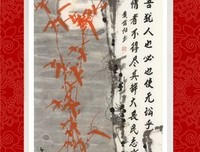 吾猶人也必也使无訟乎
情者不得尽其辞大畏民志